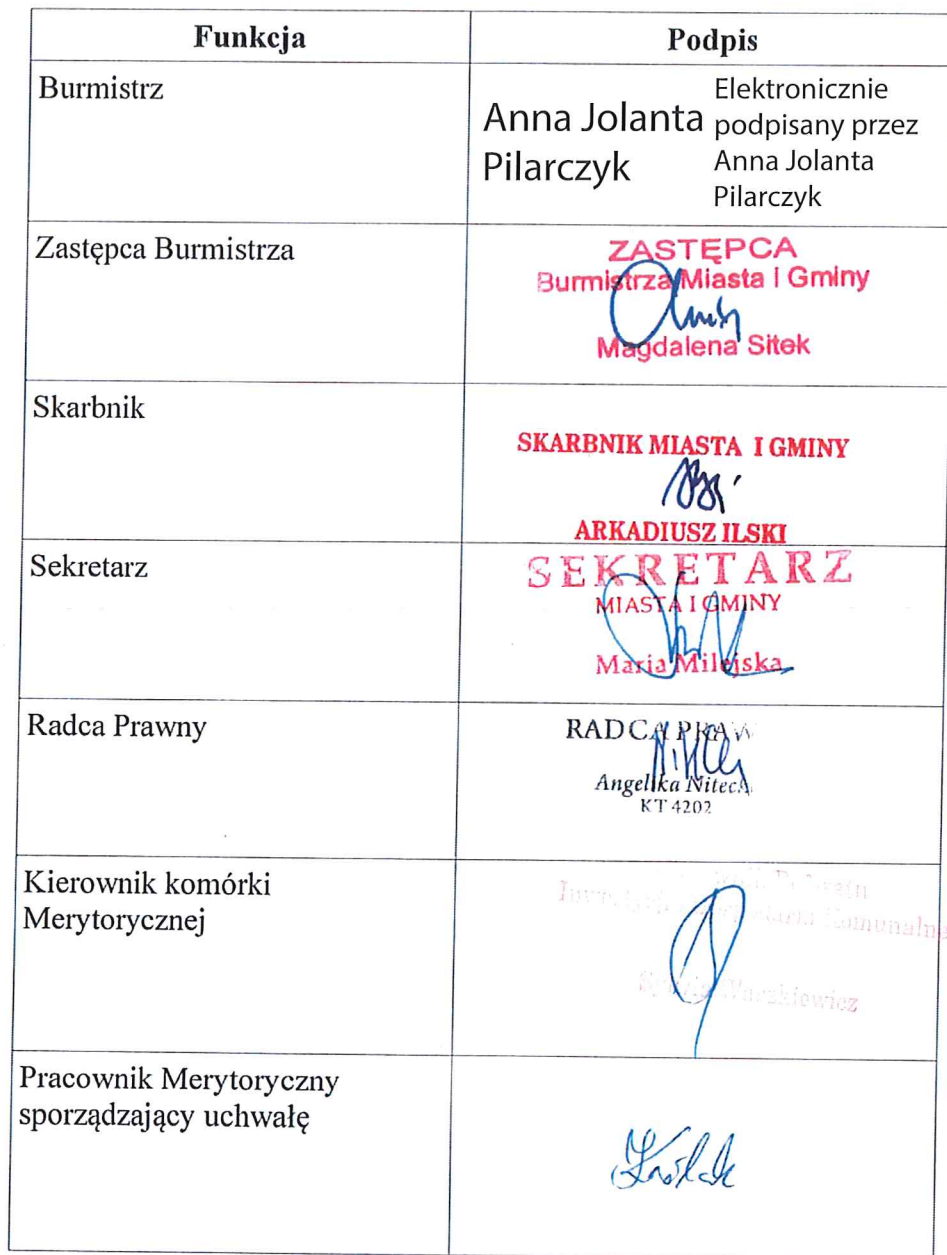 Funkcja
Podpis
Burmistrz
Anna Jolanta
Pilarczyk
Elektronicznie
podpisany przez
Anna Jolanta
Pilarczyk
Zastępca Burmistrza
ZASTĘPCA
Burmistrza Miasta i Gminy
Magdalena Sitek
Skarbnik
SKARBNIK MIASTA I GMINY
ARKADIUSZ ILSKI
Sekretarz
SEKRETARZ
MIASTA I GMINY
Maria Milejska
Radca Prawny
RADCA PRAW
Angelika Nitec
KT 4202
Kierownik komórki
Merytorycznej
Komunalne
Pracownik Merytoryczny
sporządzający uchwałę